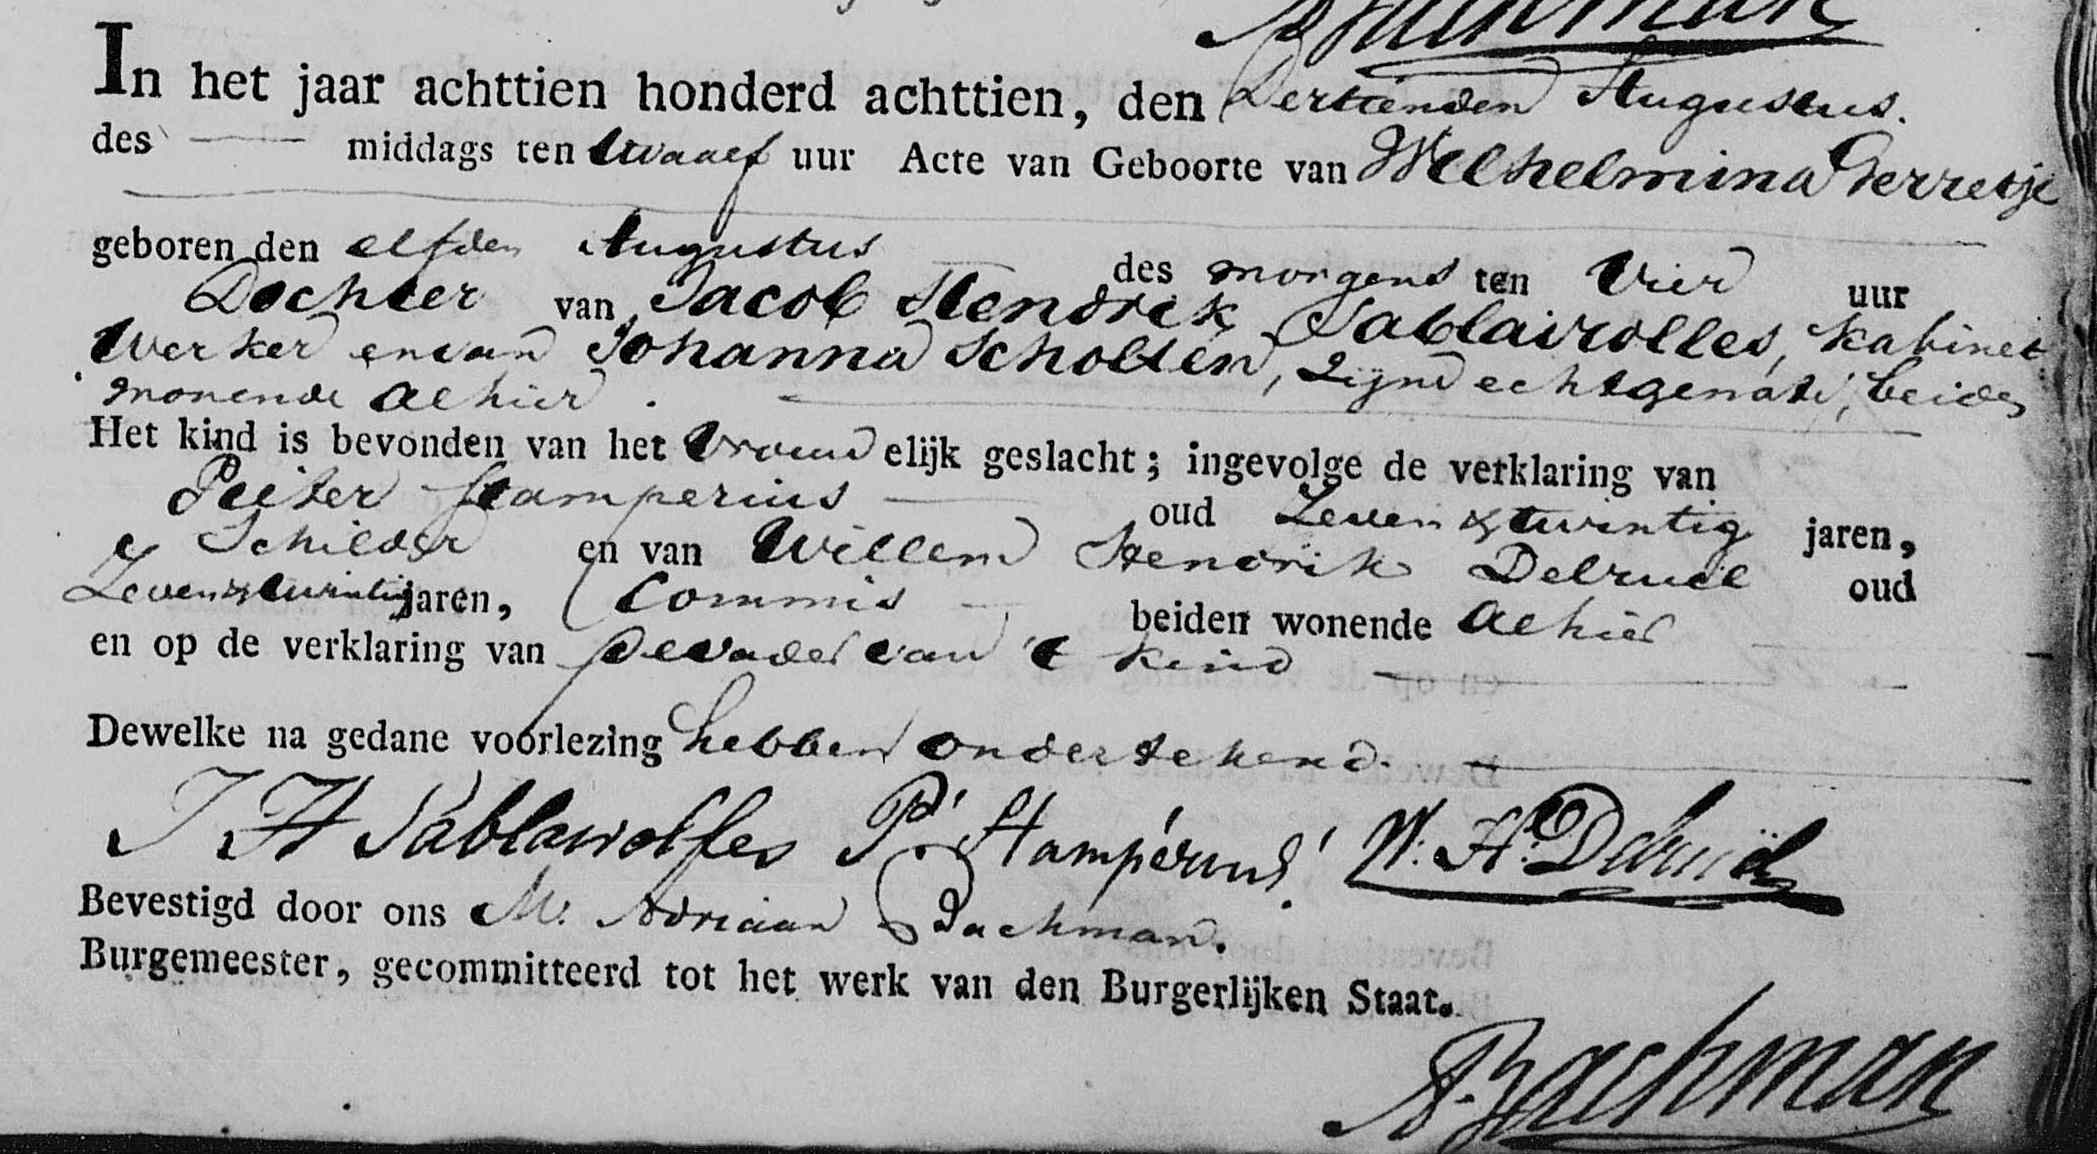 In het jaar achttien honderd achttien, den Dertienden Augustus.
des middags ten twaalf uur Acte van Geboorte van Wilhelmina Gerretje
geboren den elfden Augustus des morgens ten Vier uur
Dochter van Jacob Hendrik Sablairolles, kabinet
werker en van Johanna Scholten, zijne echtgenote, beide
wonende alhier.
Het kind is bevonden van het vrouwelijk geslacht; ingevolge de verklaring van
Pieter Stamperius oud Zeven & twintig jaren,
Schilder en van Willem Hendrik Delruël oud
Zeven & twintig jaren, Commis beiden wonende alhier
en op de verklaring van de vader van 't kind
Dewelke na gedane voorlezing hebben ondertekend.
J H Sablairolles P. Stampérius W. H.
Bevestigd door ons Mr. Adriaan Bachman.
Burgemeester, gecommitteerd tot het werk van den Burgerlijken Staat.
A. Bachman